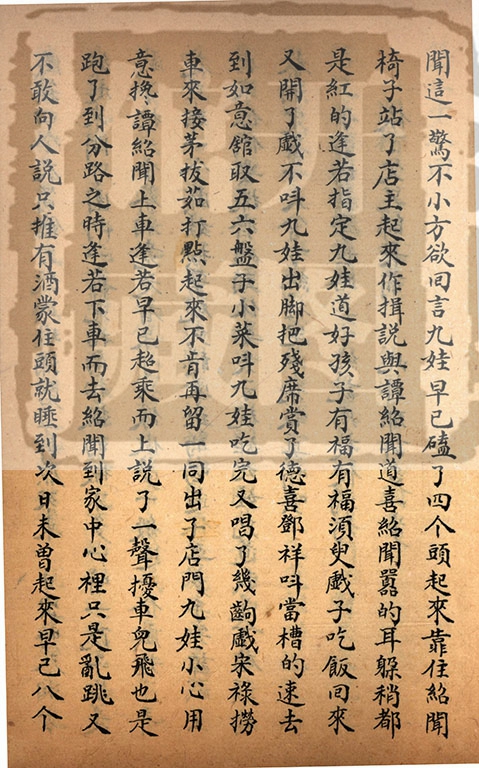 聞這一驚不小方欲回言九娃早已磕了四个頭起來靠住紹聞
椅子站了店主起來作揖説與譚紹聞道喜紹聞囂的耳躲稍都
是紅的逢若指定九娃道好孩子有福有福須臾戯子吃飯回來
又開了戯不呌九娃出脚把殘席賞了德喜鄧祥呌當槽的速去
到如意館取五六盤子小菜呌九娃吃完又唱了幾齣戯宋祿撈
車來接茅拔茹打㸃起來不肯再留一同出了店門九娃小心用
意搀譚紹聞上車逢若早已超乘而上説了一聲擾車兒飛也是
跑了到分路之時逢若下車而去紹聞到家中心裡只是亂跳又
不敢向人説只推有酒蒙住頭就睡到次日未曽起來早已八个